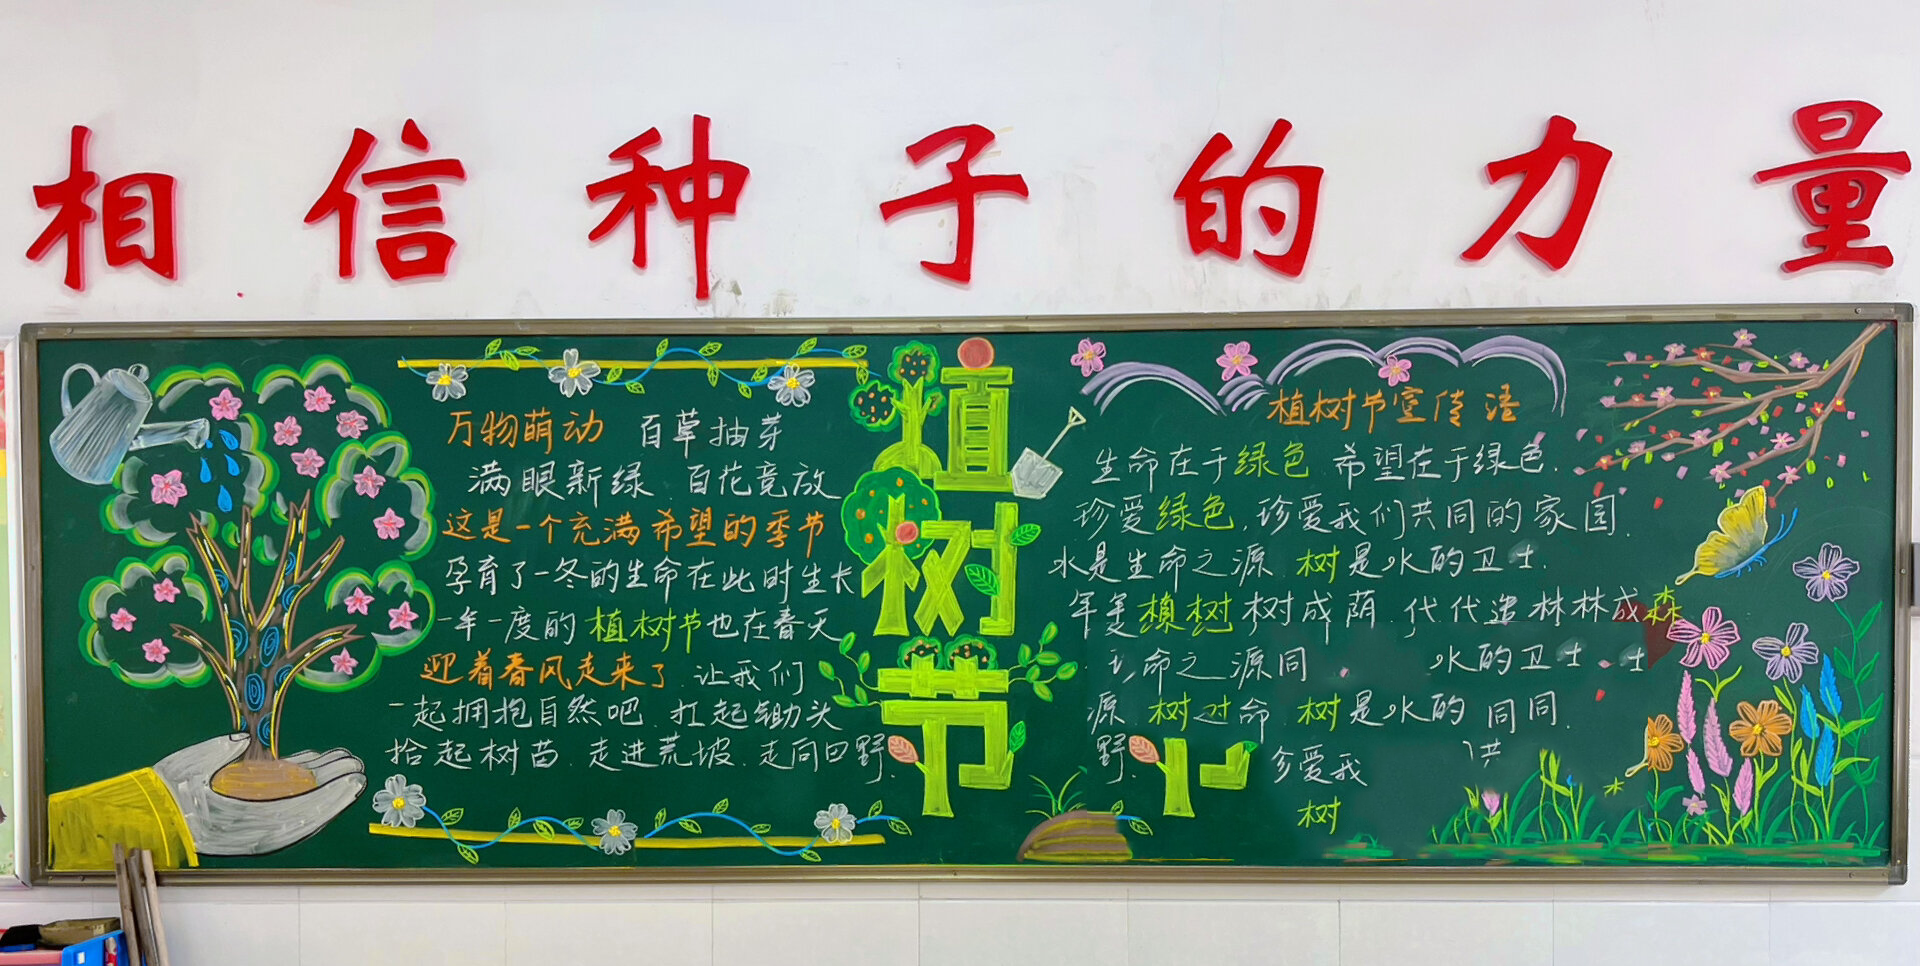 相信种子的力量
万物萌动 百草抽芽
满眼新绿 百花竞放
这是一个充满希望的季节
孕育了一冬的生命在此时生长
一年一度的植树节也在春天
迎着春风走来了 让我们
一起拥抱自然吧 扛起锄头
拾起树苗 走进荒坡 走向田野
植树节
植树节宣传语
生命在于绿色 希望在于绿色
珍爱绿色，珍爱我们共同的家园
水是生命之源 树是水的卫士
年年植树树成荫 代代造林林成森
命之源同 水的卫士 士
源 树对命 树是水的同同
野 爱我 共
树